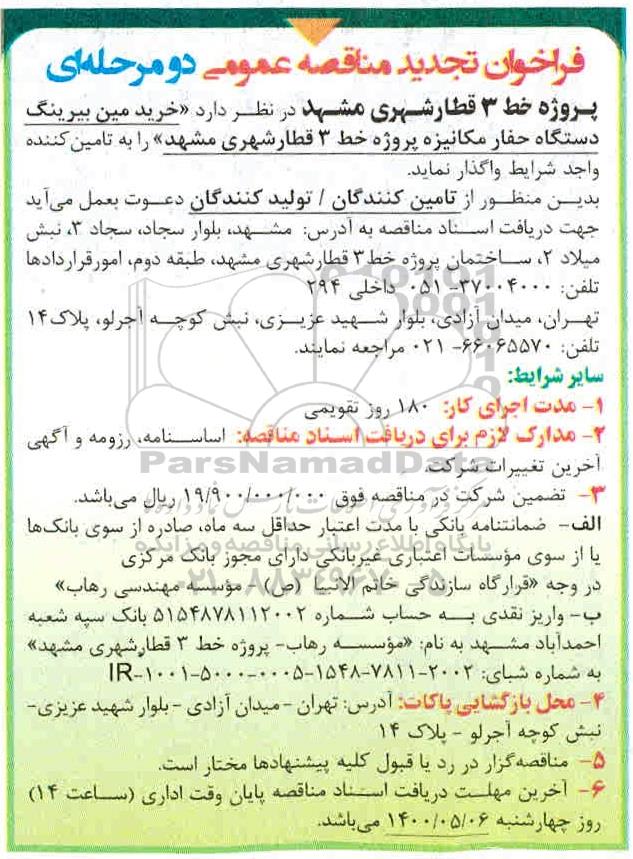 فراخوان تجدید مناقصه عمومی دو مرحله‌ای
پروژه خط ۳ قطارشهری مشهد در نظر دارد «خرید مین بیرینگ
دستگاه حفار مکانیزه پروژه خط ۳ قطارشهری مشهد» را به تامین‌کننده
واجد شرایط واگذار نماید.
بدین منظور از تامین کنندگان / تولید کنندگان دعوت بعمل می‌آید
جهت دریافت اسناد مناقصه به آدرس: مشهد، بلوار سجاد، سجاد ۳، نبش
میلاد ۲، ساختمان پروژه خط ۳ قطارشهری مشهد، طبقه دوم، امورقراردادها
تلفن: ۳۷۰۰۴۰۰۰-۰۵۱ داخلی ۲۹۴
تهران، میدان آزادی، بلوار شهید عزیزی، نبش کوچه آجرلو، پلاک۱۴
تلفن: ۶۶۰۶۵۵۷۰-۰۲۱ مراجعه نمایند.
سایر شرایط:
۱- مدت اجرای کار: ۱۸۰ روز تقویمی
۲- مدارک لازم برای دریافت اسناد مناقصه: اساسنامه، رزومه و آگهی
آخرین تغییرات شرکت.
ParsNamadData
۳- تضمین شرکت در مناقصه فوق ۱۹/۹۰۰/۰۰۰/۰۰۰ ریال می‌باشد.
الف- ضمانتنامه بانکی با مدت اعتبار حداقل سه ماه، صادره از سوی بانک‌ها
پایگاه اطلاع رسانی مناقصه و مزایده
یا از سوی مؤسسات اعتباری غیربانکی دارای مجوز بانک مرکزی
در وجه «قرارگاه سازندگی خاتم الانبیا (ص) / مؤسسه مهندسی رهاب»
۰۲۱-۸۸۳۴۹۶۷۰-۵
ب- واریز نقدی به حساب شماره ۵۱۵۴۸۷۸۱۱۲۰۰۲ بانک سپه شعبه
احمدآباد مشهد به نام: «مؤسسه رهاب- پروژه خط ۳ قطارشهری مشهد»
به شماره شبای: IR-۱۰۰۱-۵۰۰۰-۰۰۰۵-۱۵۴۸-۷۸۱۱-۲۰۰۲
۴- محل بازگشایی پاکات: آدرس: تهران -میدان آزادی -بلوار شهید عزیزی-
نبش کوچه آجرلو - پلاک ۱۴
۵- مناقصه‌گزار در رد یا قبول کلیه پیشنهادها مختار است.
۶- آخرین مهلت دریافت اسناد مناقصه پایان وقت اداری (ساعت ۱۴)
روز چهارشنبه ۱۴۰۰/۰۵/۰۶ می‌باشد.